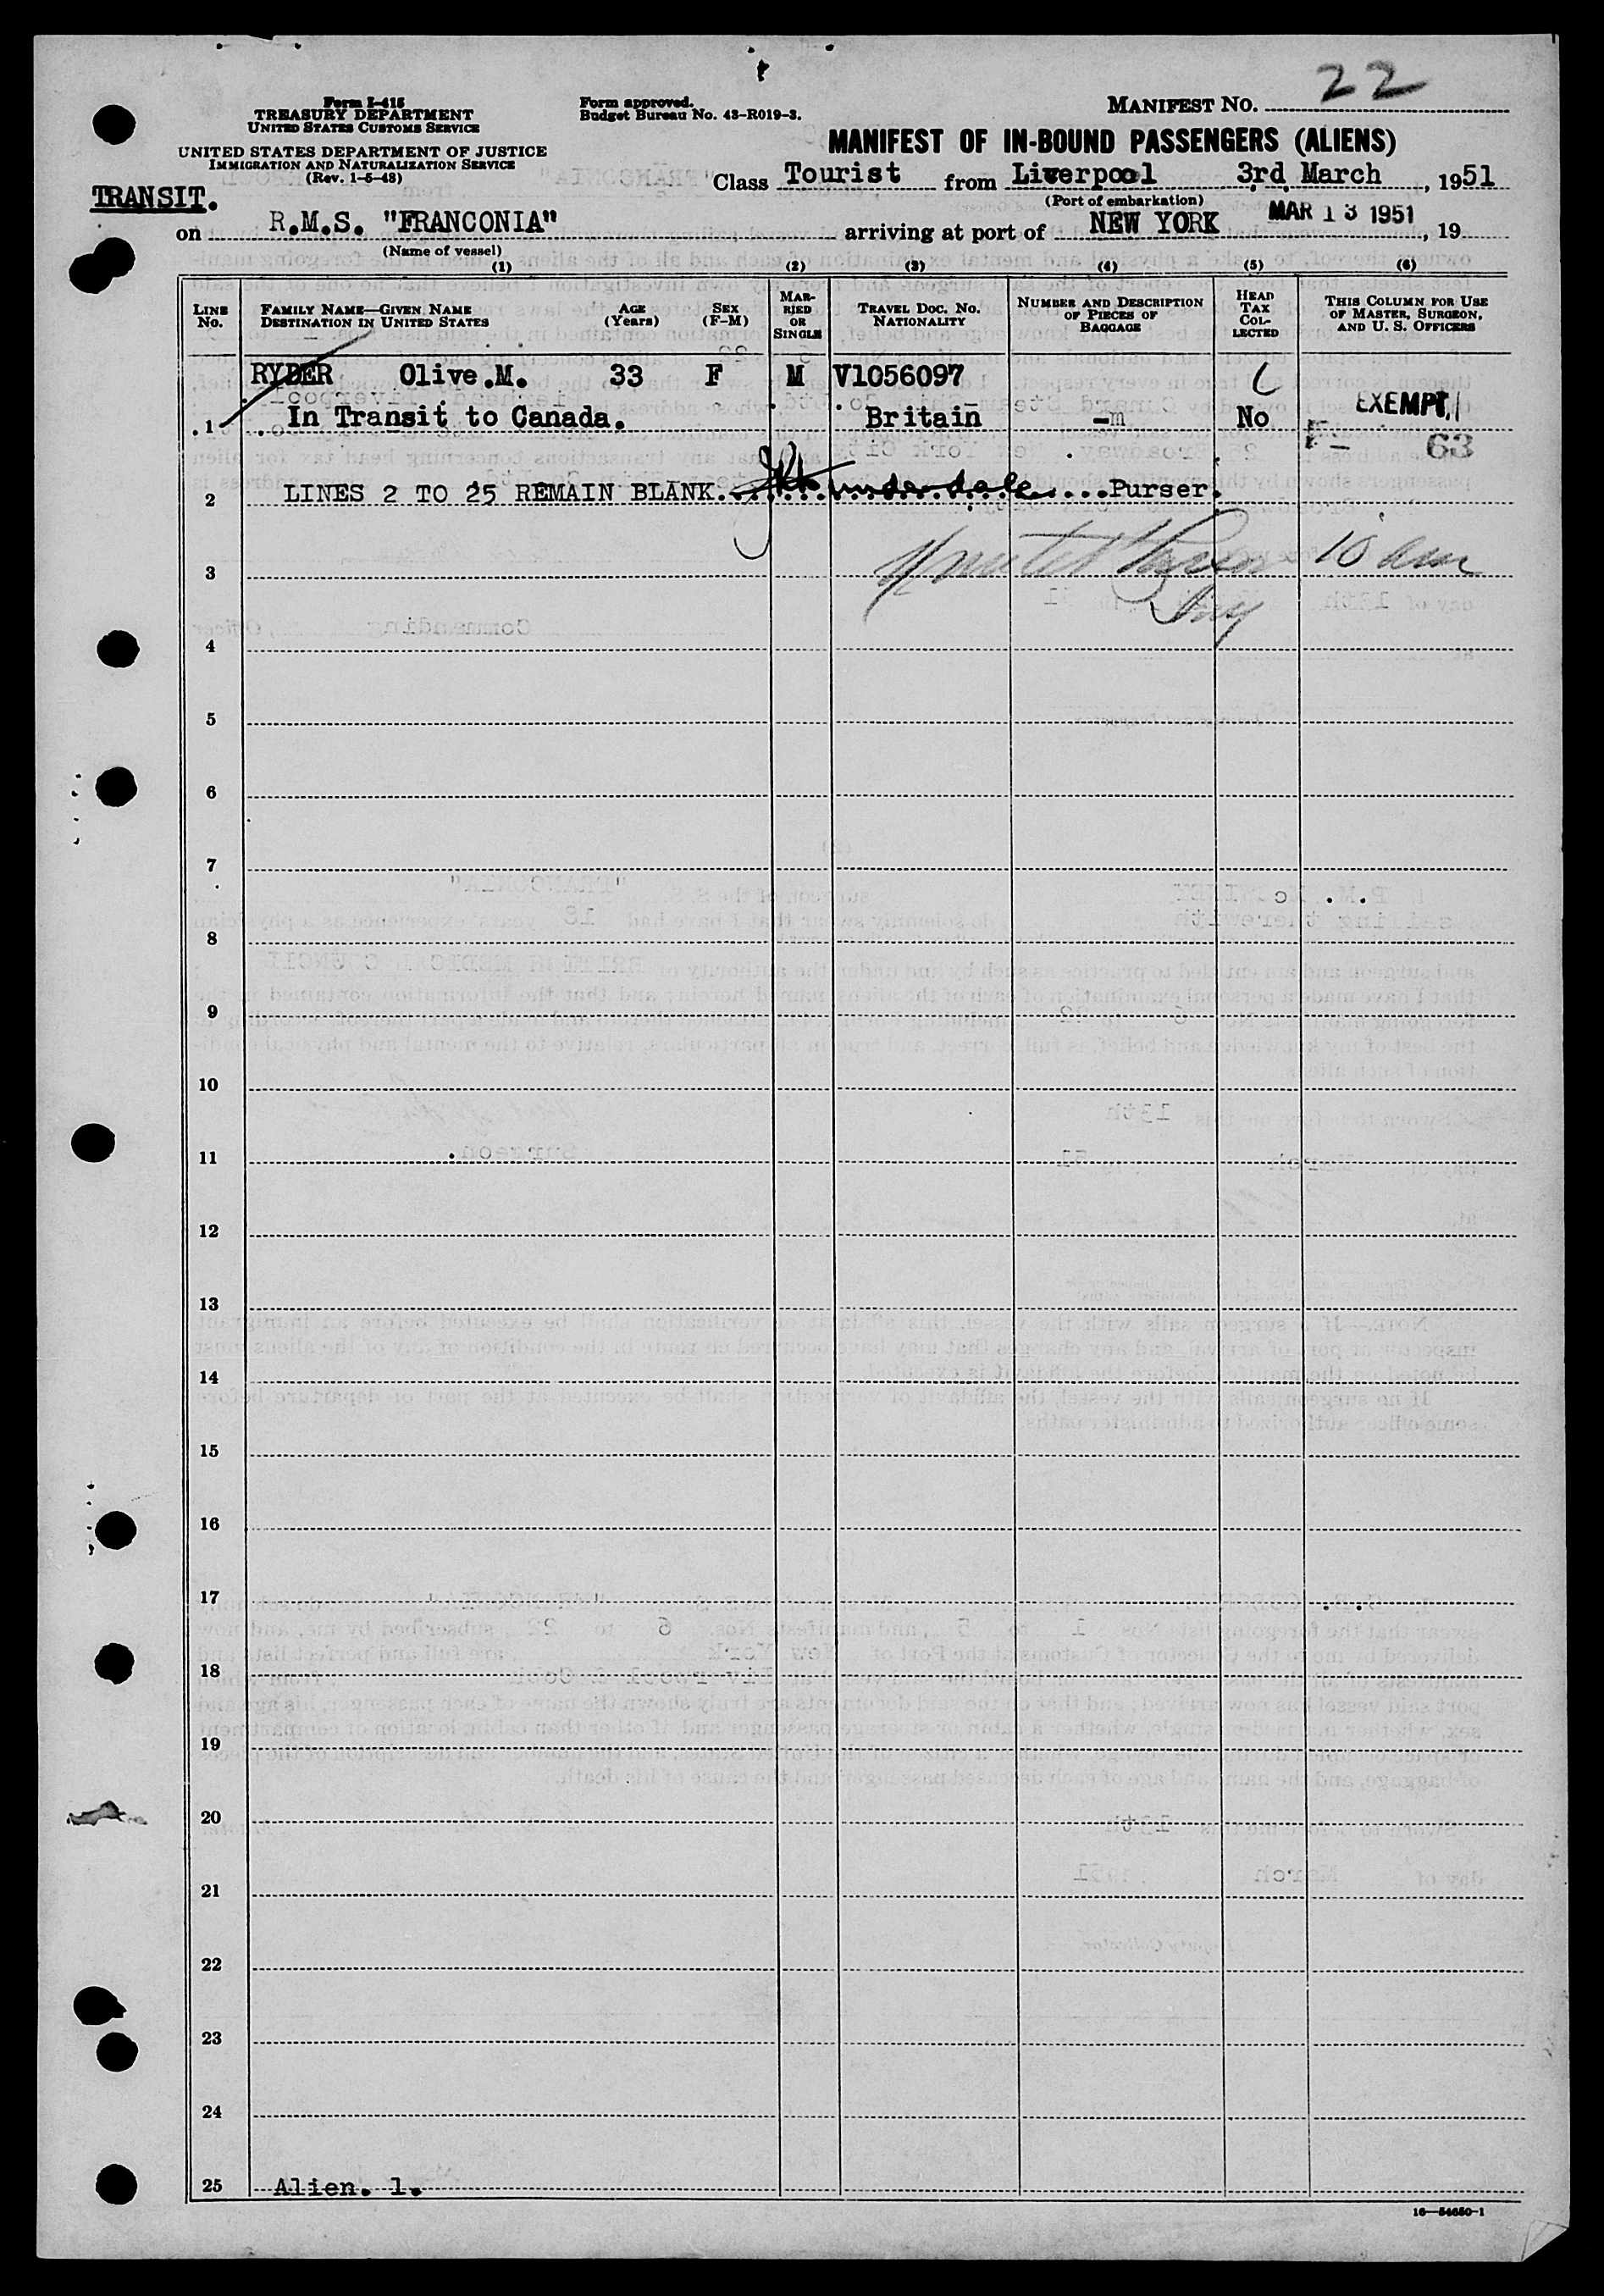 MANIFEST NO. 22
Form I-415
TREASURY DEPARTMENT
UNITED STATES CUSTOMS SERVICE
Form approved.
Budget Bureau No. 43-R019-3.
UNITED STATES DEPARTMENT OF JUSTICE
IMMIGRATION AND NATURALIZATION SERVICE
(Rev. 1-5-48)
MANIFEST OF IN-BOUND PASSENGERS (ALIENS)
TRANSIT.
Class Tourist from Liverpool 3rd March, 1951
(Port of embarkation)
on R.M.S. "FRANCONIA" arriving at port of NEW YORK MAR 13 1951, 19
(Name of vessel)
(1) (2) (3) (4) (5) (6)
LINE No. FAMILY NAME—GIVEN NAME DESTINATION IN UNITED STATES AGE (Years) SEX (F-M) MARRIED OR SINGLE TRAVEL DOC. No. NATIONALITY NUMBER AND DESCRIPTION OF PIECES OF BAGGAGE HEAD TAX COLLECTED THIS COLUMN FOR USE OF MASTER, SURGEON, AND U. S. OFFICERS
RYDER Olive.M. 33 F M V1056097
1 In Transit to Canada. Britain No EXEMPT
F- 63
2 LINES 2 TO 25 REMAIN BLANK. Purser.
10 am
3
4
5
6
7
8
9
10
11
12
13
14
15
16
17
18
19
20
21
22
23
24
25 Alien. 1.
16—54650-1